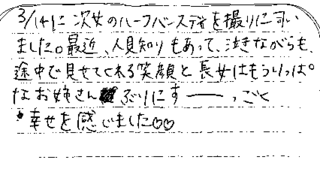 3/14に次女のハーフバースデイを撮りに伺い
ました。最近、人見知りもあって、泣きながらも、
途中で見せてくれる笑顔と長女はもういっぱ。
なお姉さんぶりにすーーっごく
幸せを感じました♡♡